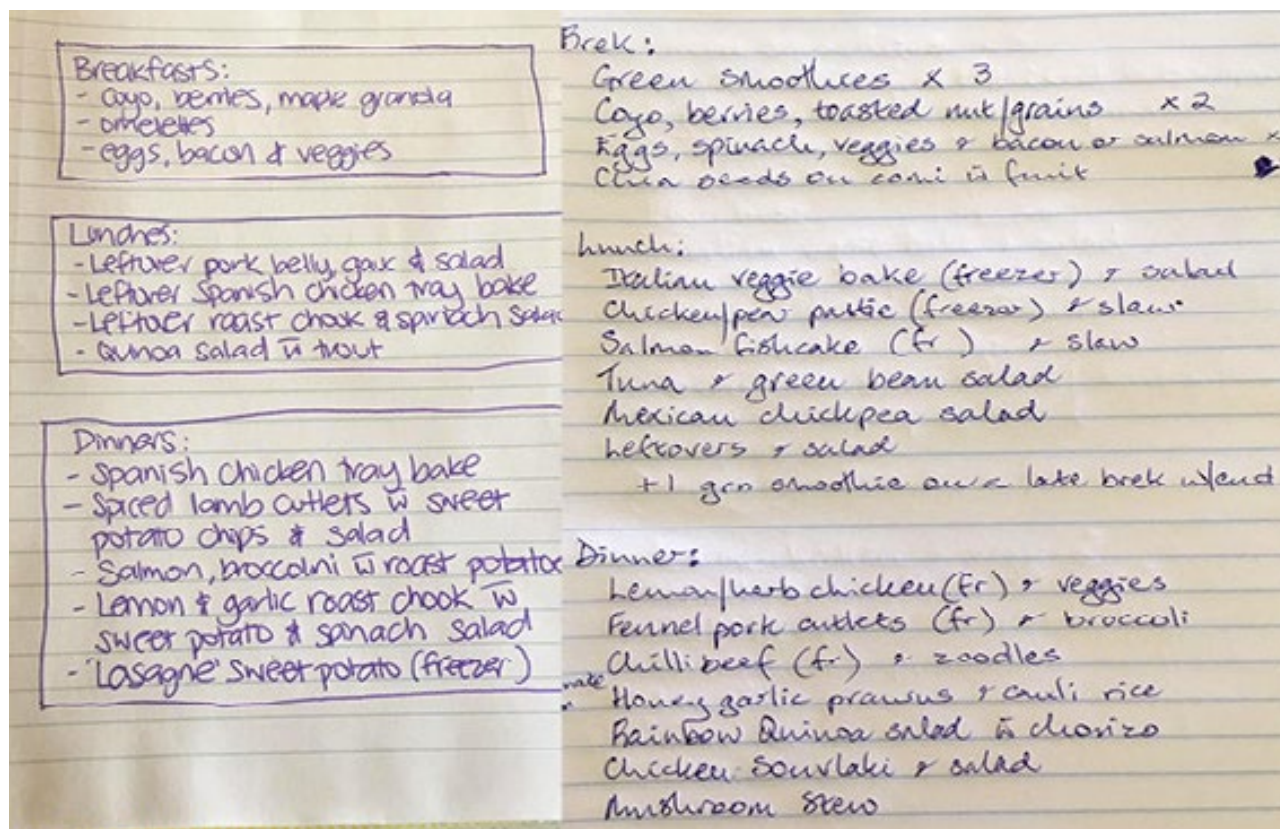 Breakfasts:
- Coyo, berries, maple granola
- omelettes
- eggs, bacon & veggies
Lunches:
- Leftover pork belly, & salad
- Leftover Spanish chicken tray bake
- Leftover roast chook & spinach salad
- Quinoa salad w̄ trout
Dinners:
- Spanish chicken tray bake
- Spiced lamb cutlets w̄ sweet
potato chips & salad
- Salmon, broccolini w̄ roast potatoe
- Lemon & garlic roast chook w̄
sweet potato & spinach salad
- 'Lasagne' sweet potato (freezer)
Brek:
Green smoothies x 3
Coyo, berries, toasted nut/grains x 2
Eggs, spinach, veggies & bacon or salmon x
Chia seeds w̄ fruit
Lunch:
Italian veggie bake (freezer) & salad
Chicken/pea pattie (freezer) & slaw
Salmon fishcake (fr) & slaw
Tuna & green bean salad
Mexican chickpea salad
Leftovers & salad
+1 grn smoothie late brek w/end
Dinner:
Lemon/herb chicken (fr) & veggies
Fennel pork cutlets (fr) & broccoli
Chilli beef (fr) & zoodles
Honey garlic prawns & cauli rice
Rainbow Quinoa salad w̄ chorizo
Chicken Souvlaki & salad
Mushroom Stew